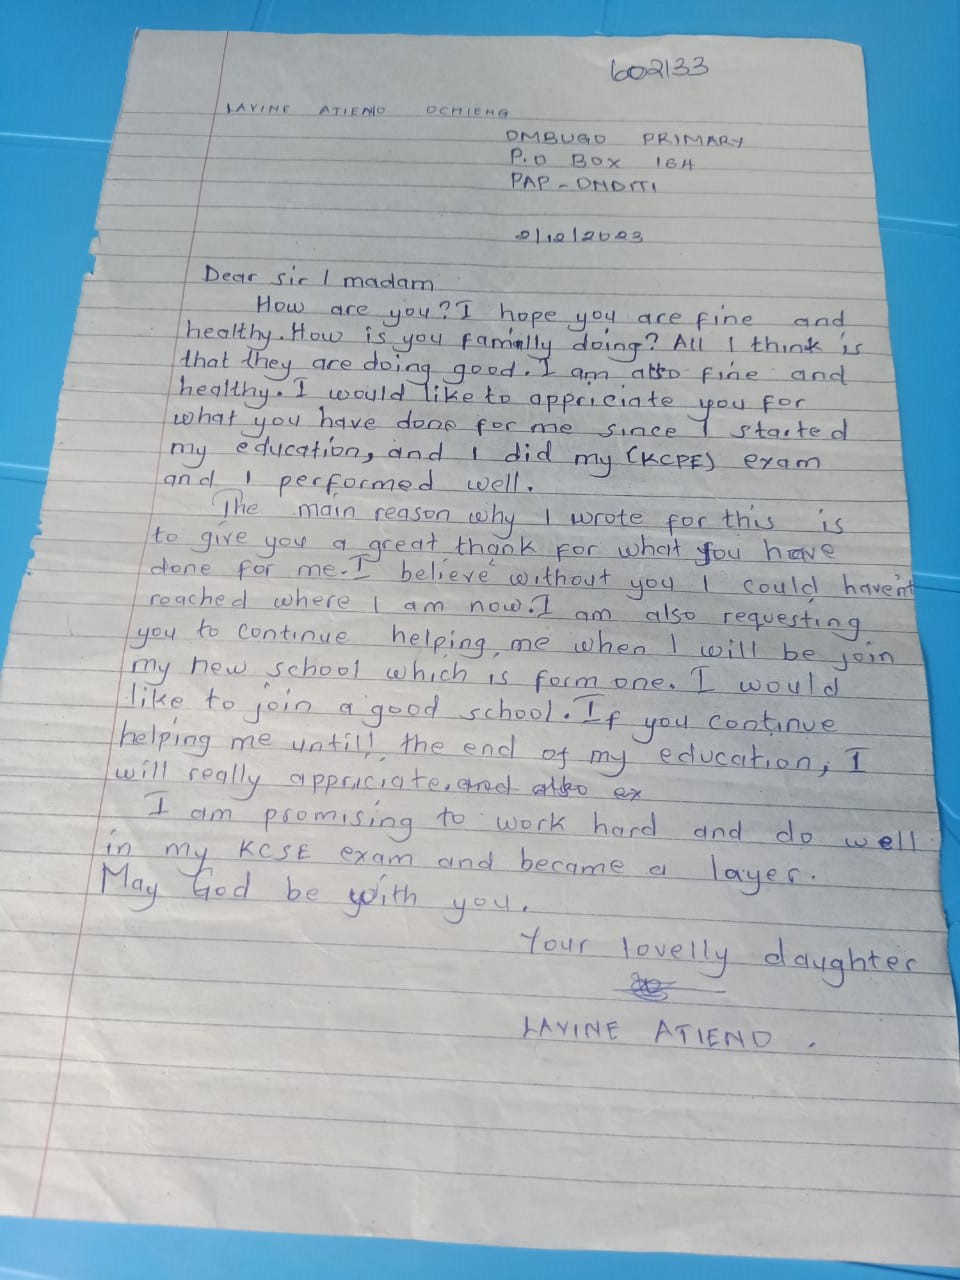 602133
LAVINE ATIENO OCHIENG
OMBUGO PRIMARY
P.O BOX 164
PAP-ONDITI
2/12/2023
Dear sir / madam
How are you? I hope you are fine and
healthy. How is you familly doing? All I think is
that they are doing good. I am also fine and
healthy. I would like to appriciate you for
what you have done for me since I started
my education, and I did my (KCPE) exam
and I performed well.
The main reason why I wrote for this is
to give you a great thank for what you have
done for me. I believe without you I could haven't
reached where I am now. I am also requesting
you to continue helping me when I will be join
my new school which is form one. I would
like to join a good school. If you continue
helping me untill the end of my education, I
will really appriciate. and also ex
I am promising to work hard and do well
in my KCSE exam and became a layer.
May God be with you.
Your lovelly daughter
LAVINE ATIENO.